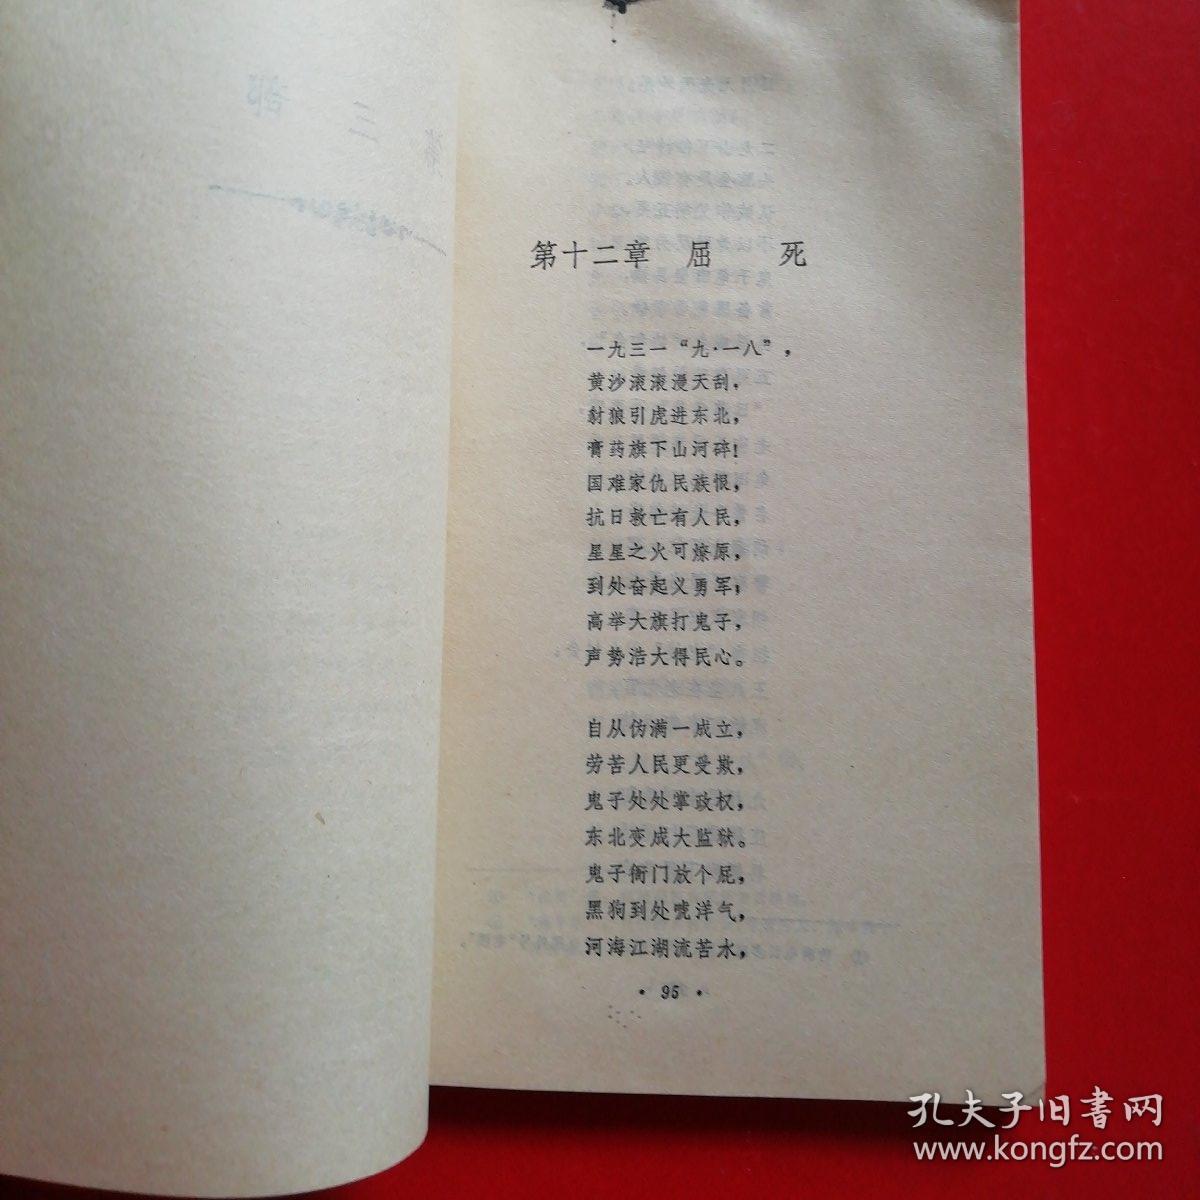 第十二章 屈 死
一九三一“九·一八”，
黄沙滚滚漫天刮，
豺狼引虎进东北，
膏药旗下山河碎！
国难家仇民族恨，
抗日救亡有人民，
星星之火可燎原，
到处奋起义勇军；
高举大旗打鬼子，
声势浩大得民心。
自从伪满一成立，
劳苦人民更受欺，
鬼子处处掌政权，
东北变成大监狱。
鬼子衙门放个屁，
黑狗到处唬洋气，
河海江湖流苦水，
· 95 ·
孔夫子旧書网
www.kongfz.com